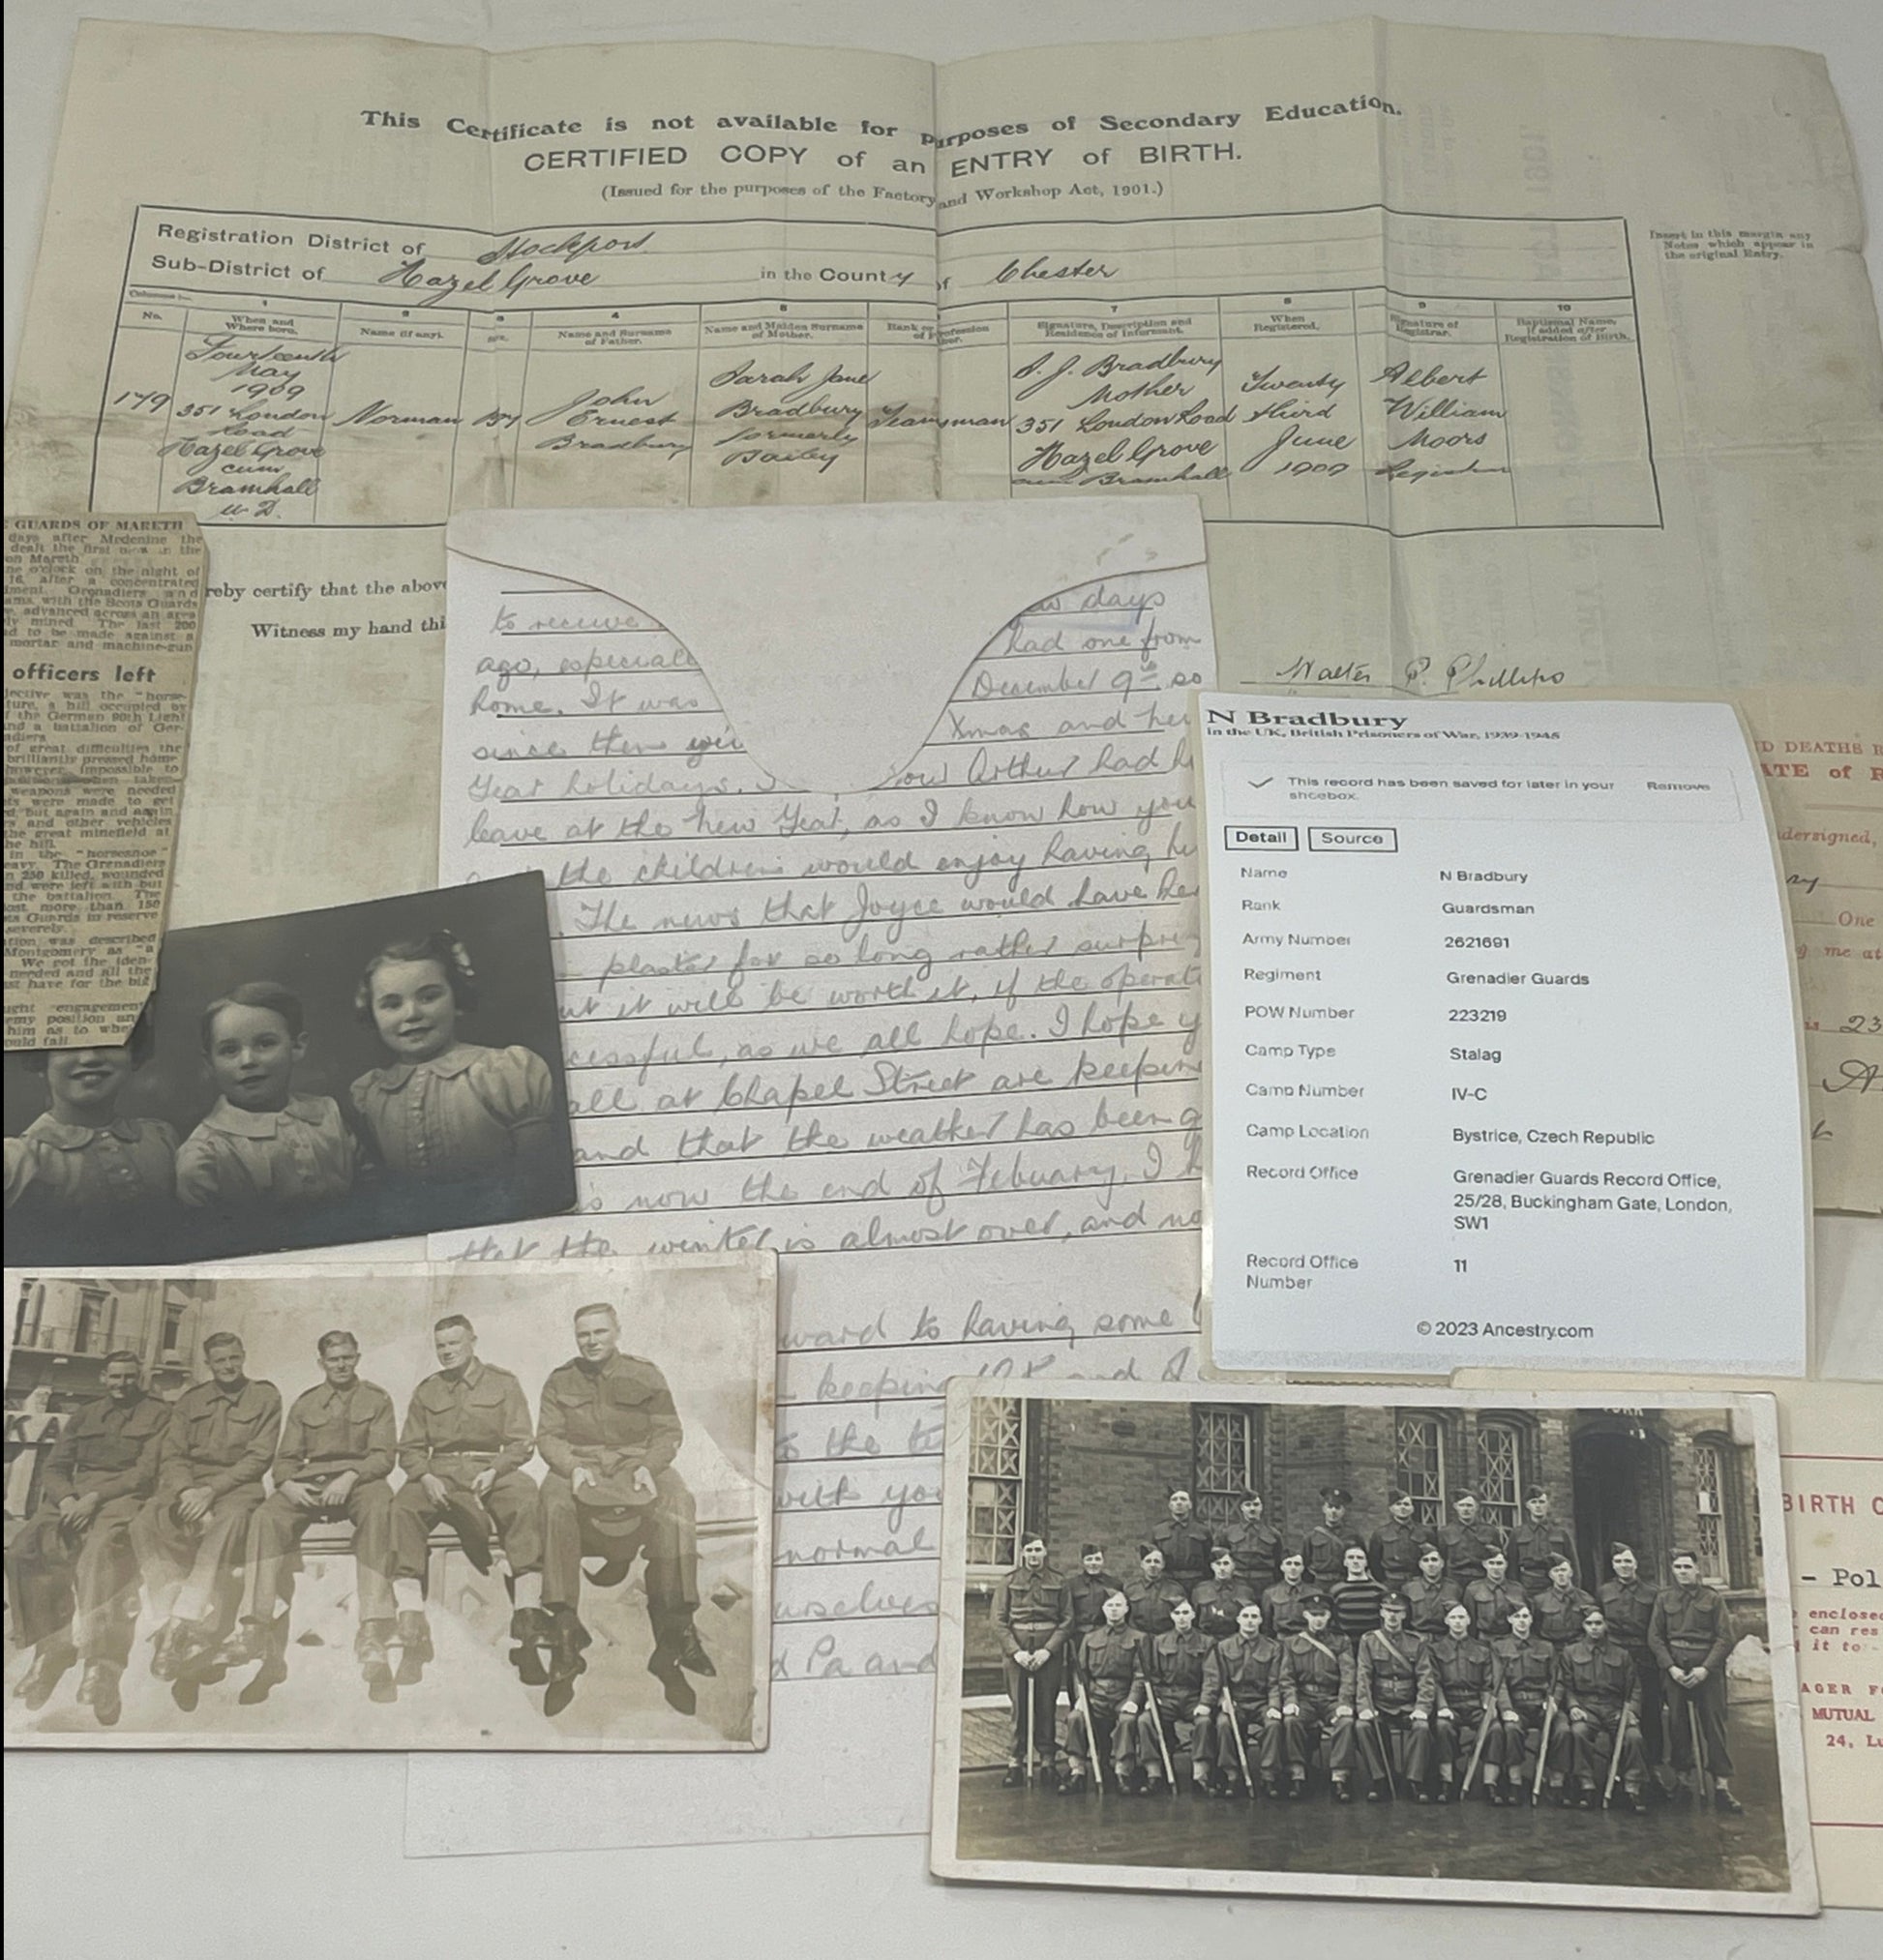 This Certificate is not available for purposes of Secondary Education.
CERTIFIED COPY of an ENTRY of BIRTH.
(Issued for the purposes of the Factory and Workshop Act, 1901.)
Registration District of Stockport
Sub-District of Hazel Grove in the County of Chester
Insert in this margin any
Notes which appear in
the original Entry.
Columns:—
1 2 3 4 5 7 8 9 10
No.
When and Where born.
Name (if any).
Name and Surname of Father.
Name and Maiden Surname of Mother.
Rank or Profession
Signature, Description and Residence of Informant.
When Registered.
Signature of Registrar.
Baptismal Name, if added after Registration of Birth.
179
Fourteenth
May
1909
351 London
Road
Hazel Grove
cum
Bramhall
U.D.
Norman
Boy
John
Ernest
Bradbury
Sarah Jane
Bradbury
formerly
Bailey
Teamsman
S. J. Bradbury
Mother
351 London Road
Hazel Grove
cum Bramhall
Twenty
third
June
1909
Albert
William
Moors
Registrar
reby certify that the above
Witness my hand thi
Walter P. Phillips
GUARDS OF MARETH
days after Medenine the
dealt the first in the
on Mareth
ne o'clock on the night of
16, after a concentrated
Grenadiers and
with the Scots Guards
advanced across an area
ly mined. The last 200
d to be made against a
mortar and machine-gun
officers left
jective was the "horse-
ture, a hill occupied by
f the German 90th Light
and a battalion of Ger-
adiers
of great difficulties the
brilliantly pressed home
however, impossible to
taken
weapons were needed
ts were made to get
d, but again and again
s and other vehicles
the great minefield at
he hill.
in the "horseshoe"
eavy. The Grenadiers
n 250 killed, wounded
nd were left with but
the battalion. The
lost more than 150
ts Guards in reserve
severely.
ation was described
Montgomery as "a
We got the iden-
needed and all the
ust have for the big
ught engagement
emy position an
him as to whe
ould fall
to receive
ew days
ago, especiall
had one from
home. It was
December 9th, so
since then
Xmas and
Year holidays.
Arthur had h
leave at the New Year, as I know how you
the children would enjoy having hi
. The news that Joyce would have her
plaster for so long rather surpri
ut it will be worth it, if the operati
cessful, as we all hope. I hope y
all at Chapel Street are keeping
and that the weather has been g
s now the end of Febuary, I h
that the winter is almost over, and no
ward to having some
keeping O.K. and
to the
with you
normal
urselves
d Pa and
N Bradbury
in the UK, British Prisoners of War, 1939-1945
This record has been saved for later in your Remove
shoebox.
Detail Source
Name N Bradbury
Rank Guardsman
Army Number 2621691
Regiment Grenadier Guards
POW Number 223219
Camp Type Stalag
Camp Number IV-C
Camp Location Bystrice, Czech Republic
Record Office Grenadier Guards Record Office,
25/28, Buckingham Gate, London,
SW1
Record Office 11
Number
© 2023 Ancestry.com
D DEATHS R
ATE of R
dersigned,
One
me at
is 23
KA
YORK
BIRTH C
– Pol
enclosed
can res
it to -
AGER F
MUTUAL
24, Lu